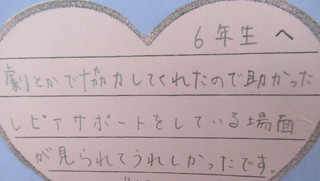 6年生へ
劇とかで協力してくれたので助かった
し ピアサポートをしている場面
が見られてうれしかったです。